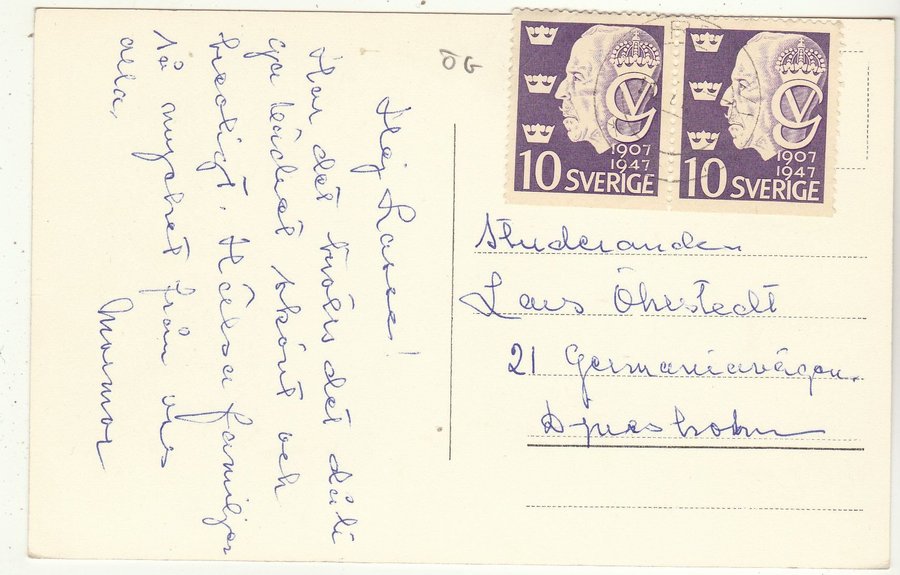 Hej Lasse!
Här det trots det dåli
ga vädret skönt och
trevligt. Hälsa familjen
så mycket från oss
alla,
Mormor
OG
1907
1947
10 SVERIGE
1907
1947
10 SVERIGE
Studeranden
Lars Öhrstedt
21 Germaniavägen.
Djursholm